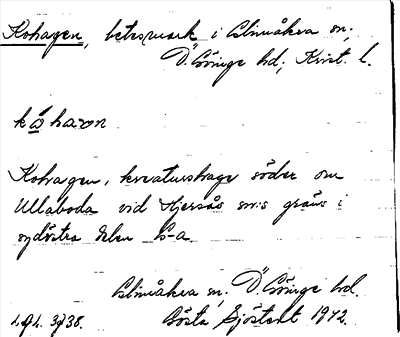 Kohagen, betesmark i Glimåkra sn;
Ö. Göinge hd; Krist. l.
kóhaʒɘn
Kohagen, kreaturshage söder om
Ullaboda vid Hjersås sn:s gräns i
sydöstra delen G-a
Glimåkra sn, Ö. Göinge hd.
Gösta Sjöstedt 1942.